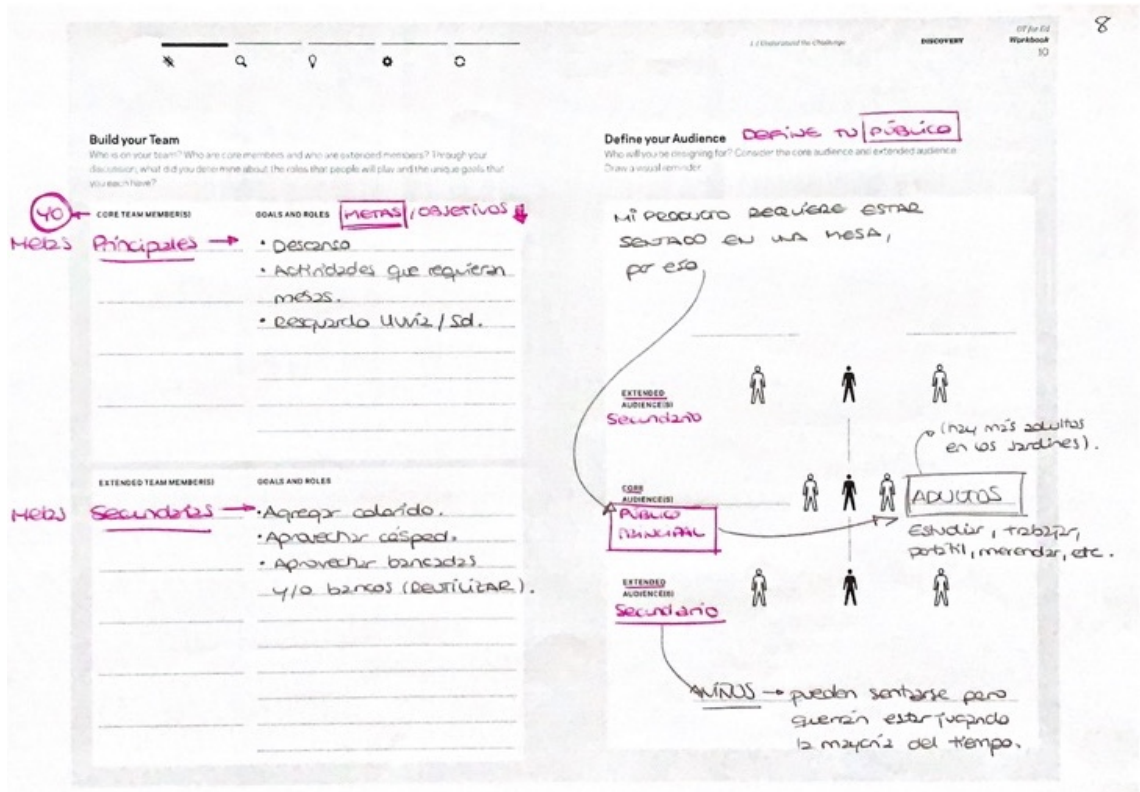 8
1.1 Understand the Challenge
DISCOVERY
DT for Ed
Workbook
10
Build your Team
Who is on your team? Who are core members and who are extended members? Through your
discussion, what did you determine about the roles that people will play and the unique goals that
you each have?
YO
CORE TEAM MEMBER(S)
GOALS AND ROLES
METAS / OBJETIVOS
Metas Principales
• Descanso
• Actividades que requieran
mesas.
• Resguardo lluvia / Sol.
EXTENDED TEAM MEMBER(S)
GOALS AND ROLES
Metas Secundarias
• Agregar colorido.
• Aprovechar césped.
• Aprovechar bancadas
y/o bancos (REUTILIZAR).
Define your Audience
DEFINE TU PÚBLICO
Who will you be designing for? Consider the core audience and extended audience.
Draw a visual reminder.
Mi PRODUCTO REQUIERE ESTAR
SENTADO EN UNA MESA,
por eso
EXTENDED
AUDIENCE(S)
Secundario
(hay más adultos
en los Jardines).
CORE
AUDIENCE(S)
PÚBLICO
PRINCIPAL
ADULTOS
Estudiar, trabajar,
portátil, merendar, etc.
EXTENDED
AUDIENCE(S)
Secundario
NIÑOS → pueden sentarse pero
querrán estar jugando
la mayoría del tiempo.